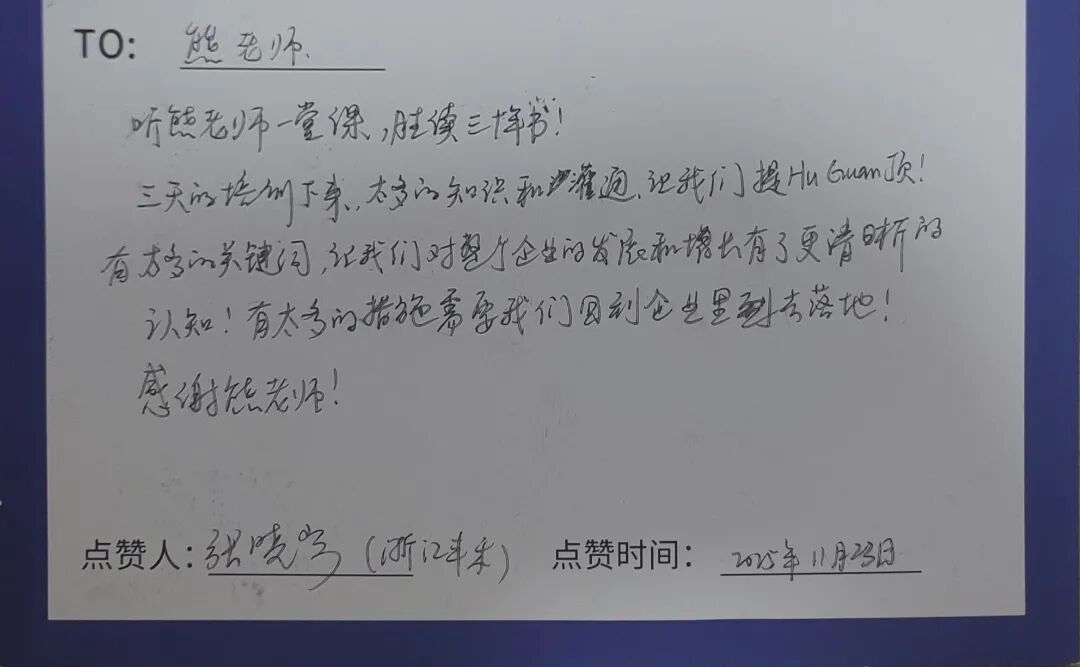 TO: 熊老师.
听熊老师一堂课,胜读三十年书!
三天的培训下来,太多的知识和灌通,让我们提Hu Guan顶!
有太多的关键词,让我们对整个企业的发展和增长有了更清晰的
认知!有太多的措施需要我们回到企业里面去落地!
感谢熊老师!
点赞人: 张晓 (浙江丰禾) 点赞时间: 2025年11月23日